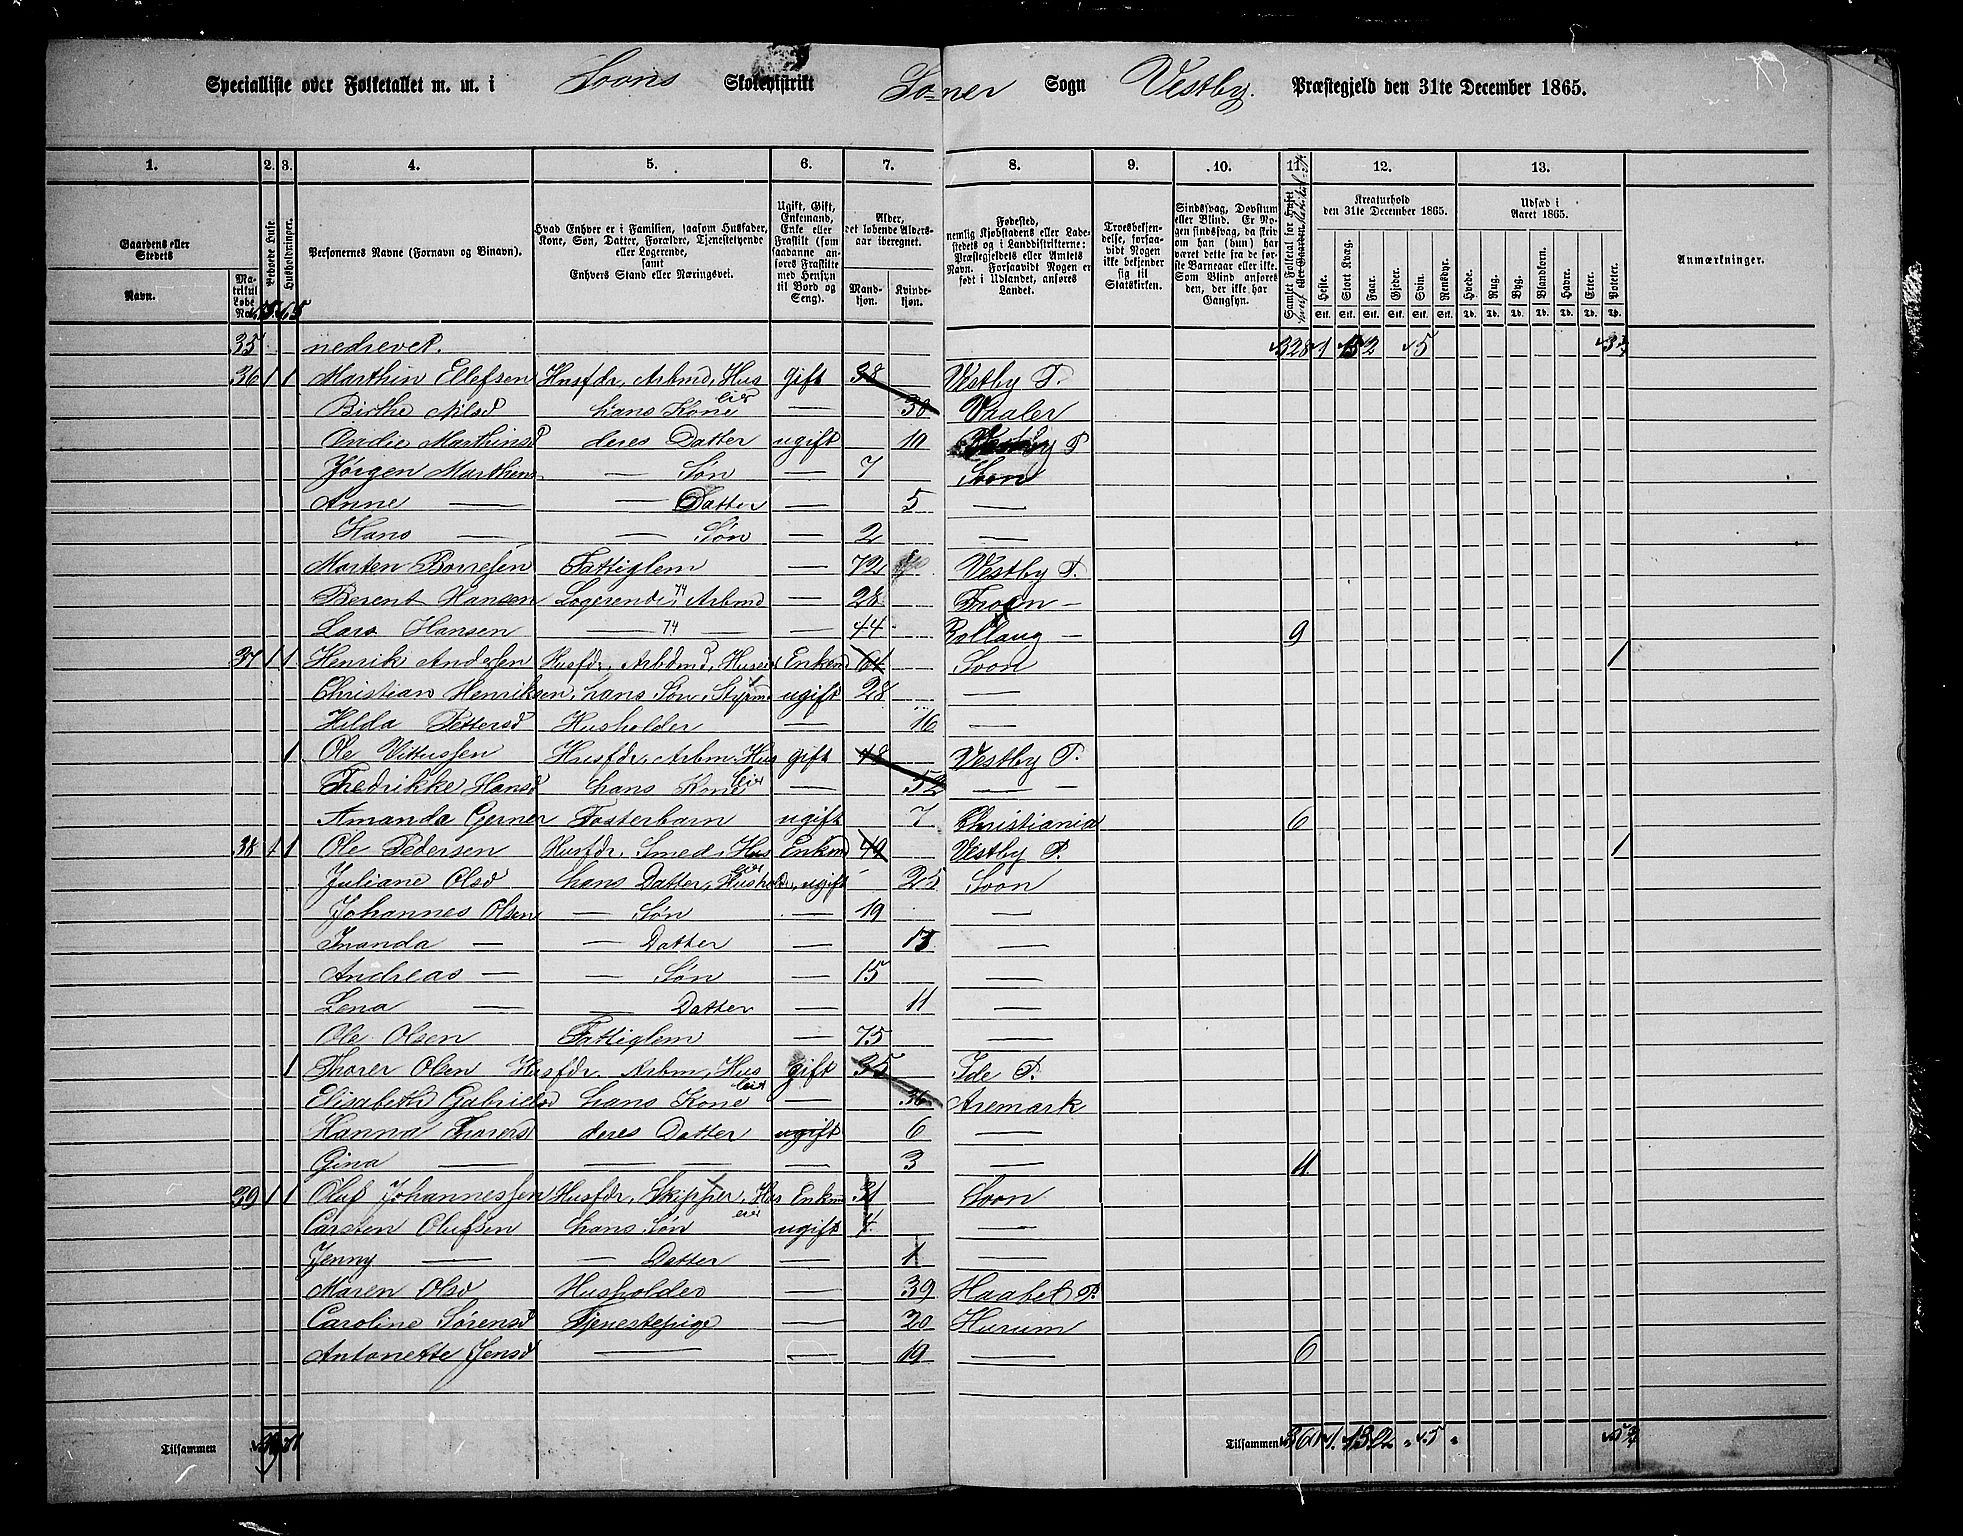 Specialliste over Folketallet m. m. i Soons Skoledistrikt Soner Sogn Vestby. Præstegjeld den 31te December 1865.
1. 2. 3. 4. 5. 6. 7. 8. 9. 10. 11. 12. 13.
Gaardens eller Stedets
Navn.
Matrikul Løbe No.
Beboede Huse
Husholdninger.
Personernes Navne (Fornavn og Binavn).
Hvad Enhver er i Familien, saasom Husfader, Kone, Søn, Datter, Forældre, Tjenestetyende eller Logerende, samt Enhvers Stand eller Næringsvei.
Ugift, Gift, Enkemand, Enke eller Fraskilt (som saadanne anføres Fraskilte med Hensyn til Bord og Seng).
Alder, det løbende Alders-aar iberegnet.
Mandkjøn. Kvindekjøn.
Fødested, nemlig Kjøbstadens eller Ladestedets og i Landdistrikterne: Præstegjeldets eller Amtets Navn. Forsaavidt Nogen er født i Udlandet, anføres Landet.
Troesbekjendelse, forsaavidt Nogen ikke bekjender sig til Statskirken.
Sindssvag, Døvstum eller Blind. Er Nogen sindssvag, da skriv om han (hun) har været dette fra de første Barneaar eller ikke. Som Blind anføres den, der ikke har Gangsyn.
Samlet Folketal for Huset
Kreaturhold den 31te December 1865.
Heste. Stort Kvæg. Faar. Gjeder. Svin. Rensdyr.
Udsæd i Aaret 1865.
Hvede. Rug. Byg. Blandkorn. Havre. Erter. Poteter.
Anmærkninger.
35 nedrevet. 328 1 13 2 5 3 3/4
36 1 1 Marthin Ellefsen Husfdr, Arbmd, Hus leier gift 38 Vestby P.
Birthe Nilsd hans Kone — 30 Vaaler
Ovidie Marthinsd deres Datter ugift 10 Vestby P
Jørgen Marthins — Søn — 7 Soon
Anne — — Datter — 5 —
Hans — — Søn — 2 —
Morten Borresen Fattiglem — 72 Vestby P.
Berent Hansen Logerende, 74 Arbmd — 28 Frogn —
Lars Hansen — 74 — — 44 Rollaug — 9
37 1 1 Henrik Andersen Husfdr, Arbdmd, Huseier Enkemd 64 Soon 1
Christian Henriksen, hans Søn, Styrmd ugift 28 —
Hilda Pettersd Husholder — 16 —
1 Ole Vittussen Husfdr, Arbm, Hus leier gift 48 Vestby P.
Fredrikke Hansd hans Kone — 52 — —
Amanda Gerner Fosterbarn ugift 7 Christiania 6
38 1 1 Ole Pedersen Husfdr, Smed, Hus eier Enkemd 49 Vestby P. 1
Juliane Olsd hans Datter, Husholdr, ugift 25 Soon
Johannes Olsen — Søn — 19 —
Inanda — — Datter — 13 —
Andreas — — Søn — 15 —
Lena — — Datter — 11 —
Ole Olsen Fattiglem — 75 —
1 Thorer Olsen Husfdr, Arbm, Hus leier gift 35 Ide P.
Elisabeth Gabrielsd hans Kone — 36 Aremark
Hanna Thorersd deres Datter ugift 6 —
Gina — — — 3 — 11
39 1 1 Oluf Johannessen Husfdr, Skipper, Hus eier Enkmd 31 Soon
Carsten Olufsen hans Søn ugift 4 —
Jenny — — Datter — 1 —
Maren Olsd Husholder — 39 Haabøl P.
Caroline Sørensd Tjenestepige — 20 Hurum
Antonette Jensd — — 19 — 6
Tilsammen
Tilsammen 360 1 13 2 " 5 "